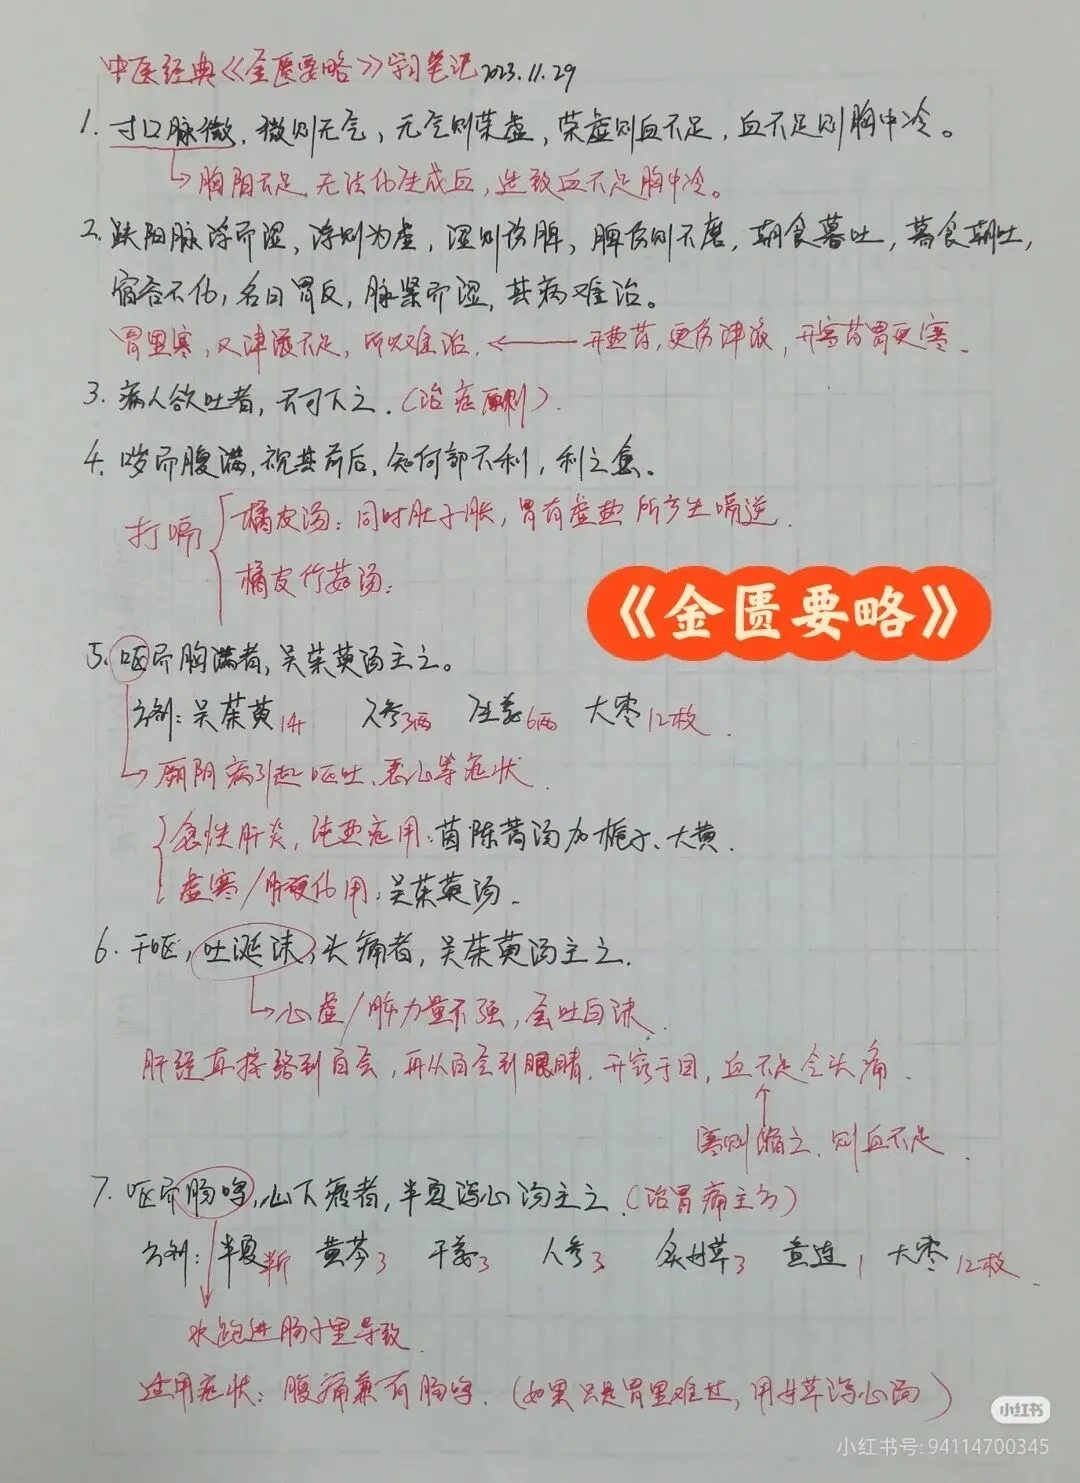 中医经典《金匮要略》学习笔记2023.11.29
1. 寸口脉微，微则无气，无气则荣虚，荣虚则血不足，血不足则胸中冷。
胸阳不足，无法化生成血，造致血不足胸中冷。
2. 趺阳脉浮而涩，浮则为虚，涩则伤脾，脾伤则不磨，朝食暮吐，暮食朝吐，
宿谷不化，名曰胃反，脉紧而涩，其病难治。
胃里寒，又津液不足，所以难治. ← 开热药，更伤津液，开寒药胃更寒.
3. 病人欲吐者，不可下之.（治症原则）.
4. 哕而腹满，视其前后，知何部不利，利之愈。
打嗝
橘皮汤：同时肚子胀，胃有虚热所产生嗝逆.
橘皮竹茹汤：
《金匮要略》
5. 呕而胸满者，吴茱萸汤主之。
方剂：吴茱萸1升 人参3两 生姜6两 大枣12枚.
厥阴病引起呕吐、恶心等症状
急性肝炎，纯热症用：茵陈蒿汤加栀子、大黄.
虚寒/肝硬化用：吴茱萸汤.
6. 干呕，吐涎沫，头痛者，吴茱萸汤主之.
心虚/肺力量不强，会吐白沫.
肝经直接络到百会，再从百会到眼睛，开窍于目，血不足会头痛.
寒则缩之，则血不足.
7. 呕而肠鸣，心下痞者，半夏泻心汤主之.（治胃痛主方）
方剂：半夏半斤 黄芩3 干姜3 人参3 炙甘草3 黄连1 大枣12枚.
水跑进肠子里导致.
适用症状：腹痛兼有肠鸣.（如果只是胃里难过，用甘草泻心汤）
小红书
小红书号: 94114700345